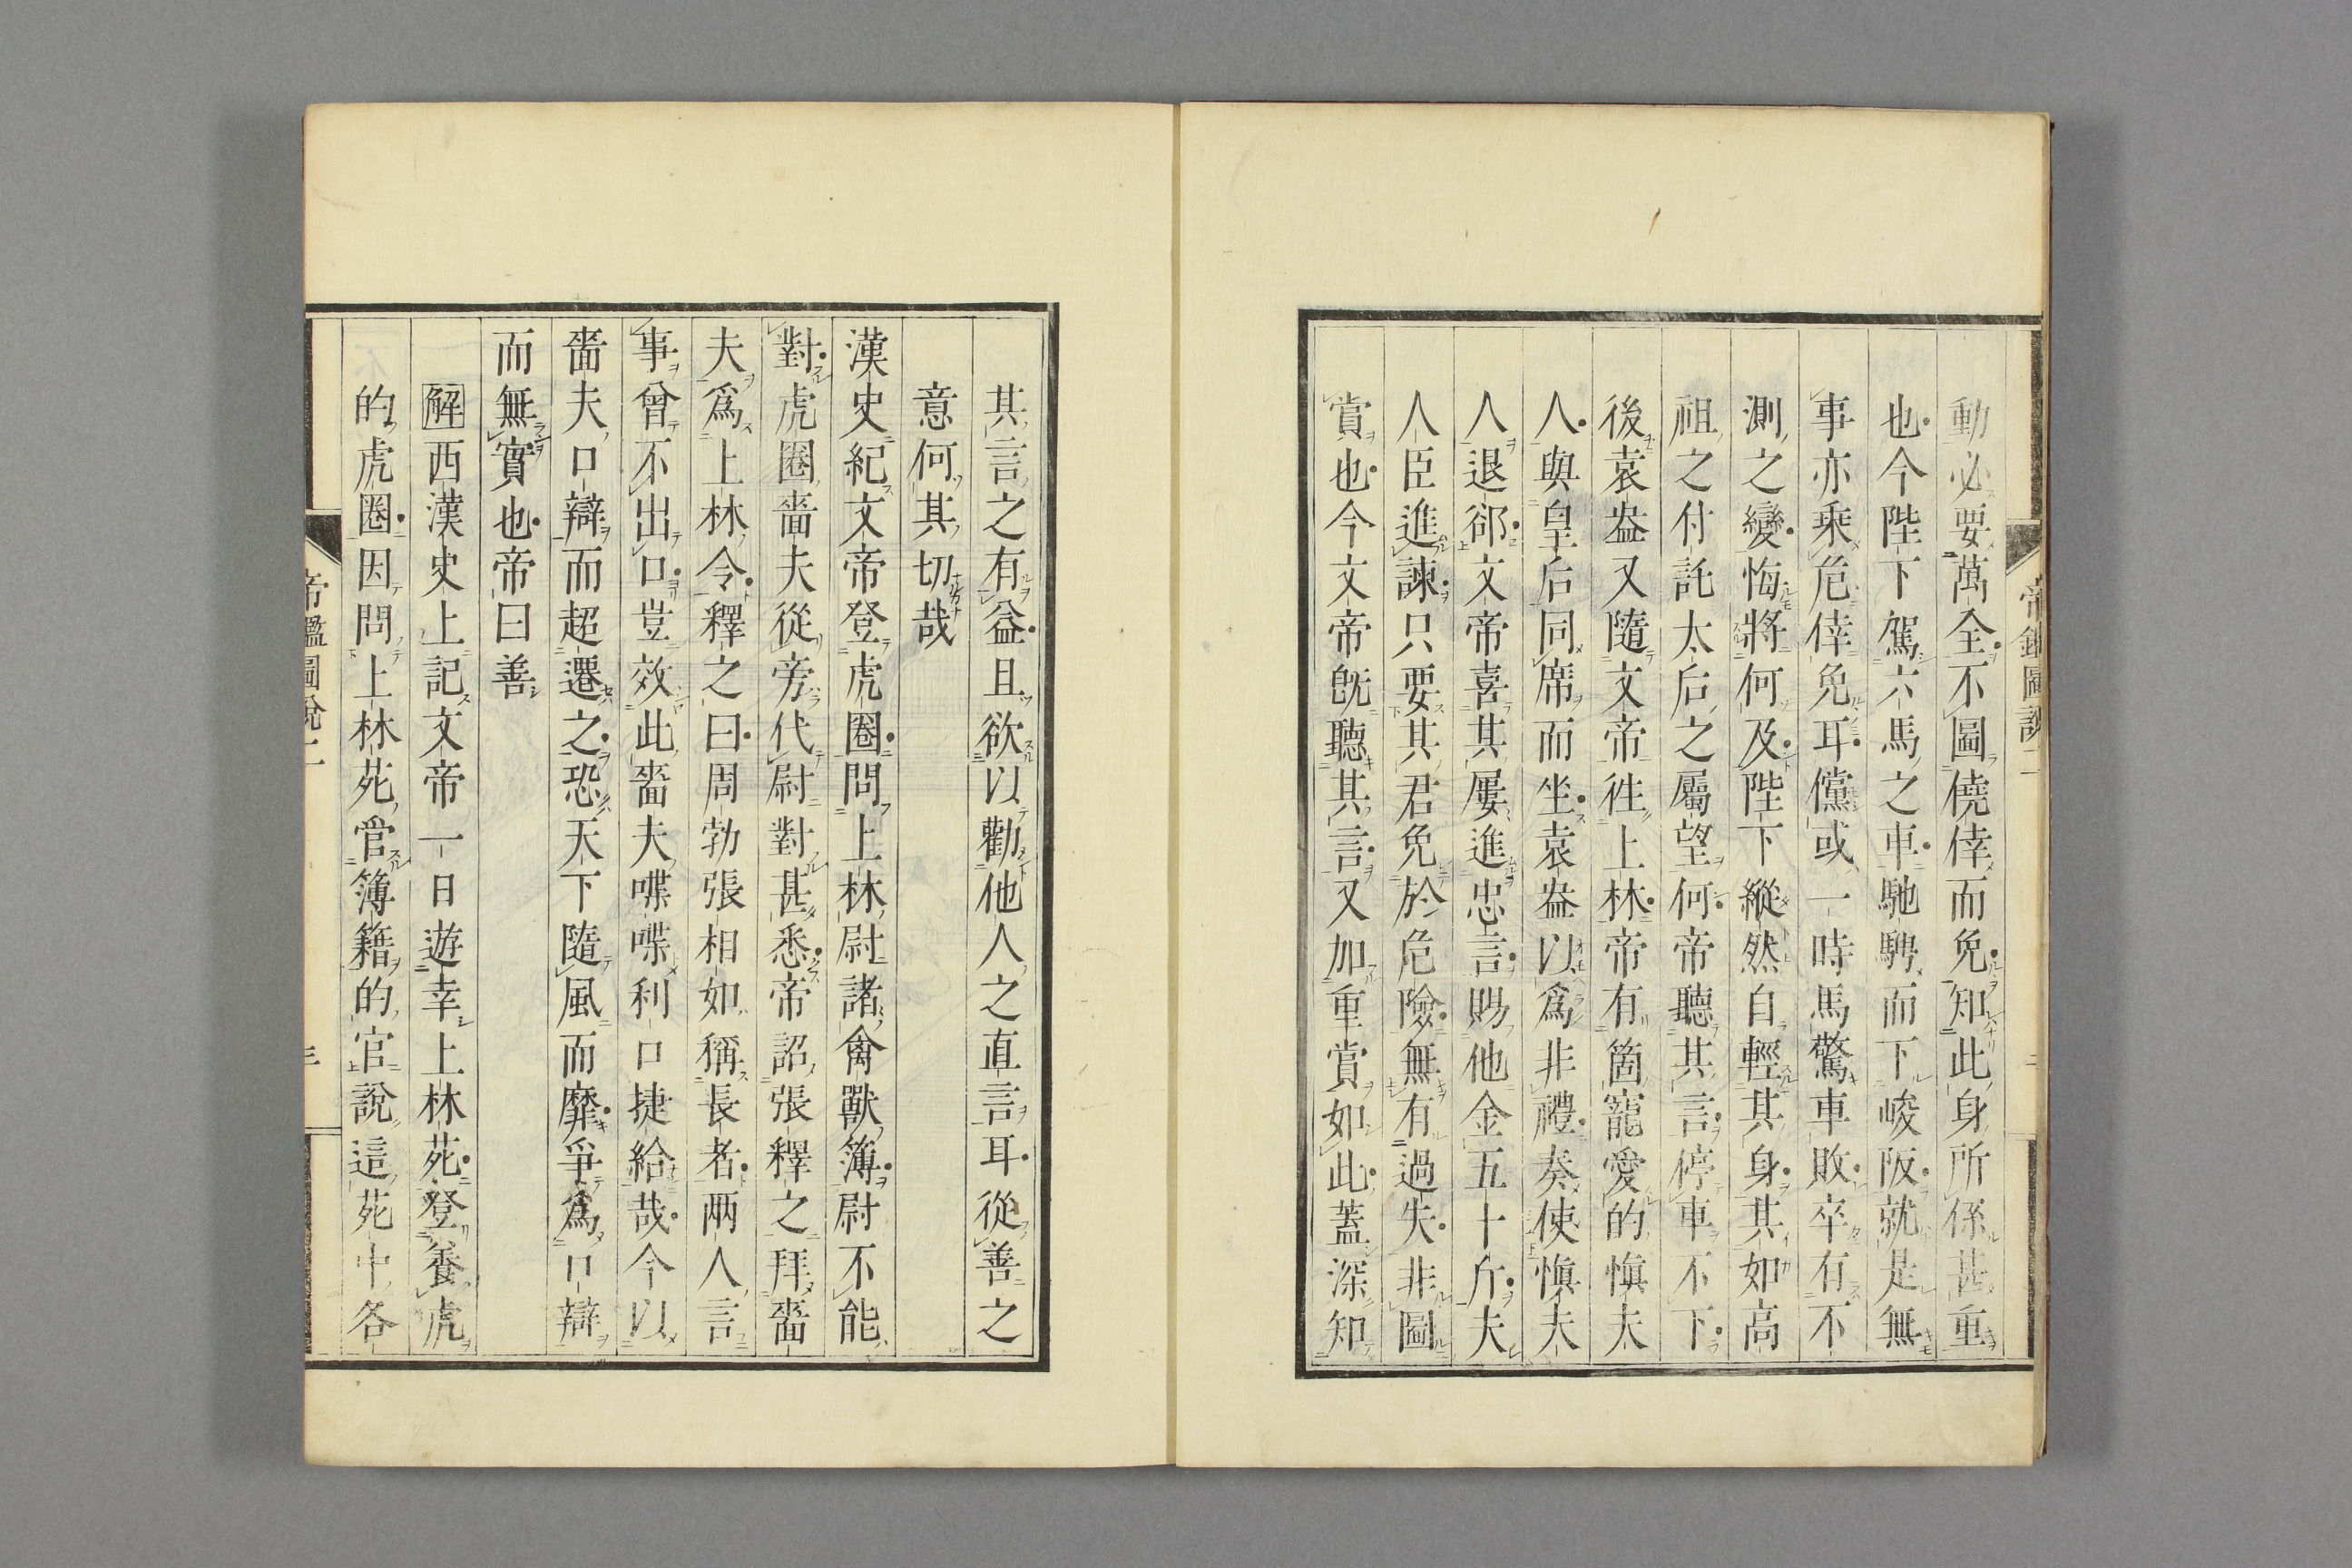 動必要萬全不圖僥倖而免知此身所係甚重
也今陛下駕六馬之車馳騁而下峻阪就是無
事亦乘危倖免耳儻或一時馬驚車敗卒有不
測之變悔將何及陛下縱然自輕其身其如高
祖之付託太后之屬望何帝聽其言停車不下
後袁盎又隨文帝徃上林帝有箇寵愛的愼夫
人與皇后同席而坐袁盎以爲非禮奏使愼夫
人退卻文帝喜其屢進忠言賜他金五十斤夫
人臣進諫只要其君免於危險無有過失非圖
賞也今文帝旣聽其言又加重賞如此蓋深知
其言之有益且欲以勸他人之直言耳從善之
意何其切哉
漢史紀文帝登虎圈問上林尉諸禽獸簿尉不能
對虎圈嗇夫從旁代尉對甚悉帝詔張釋之拜嗇
夫爲上林令釋之曰周勃張相如稱長者兩人言
事曾不出口豈效此嗇夫喋喋利口捷給哉今以
嗇夫口辯而超遷之恐天下隨風而靡爭爲口辯
而無實也帝曰善
解西漢史上記文帝一日遊幸上林苑登養虎
的虎圈因問上林苑管簿籍的官說這苑中各
帝鑑圖說二
三